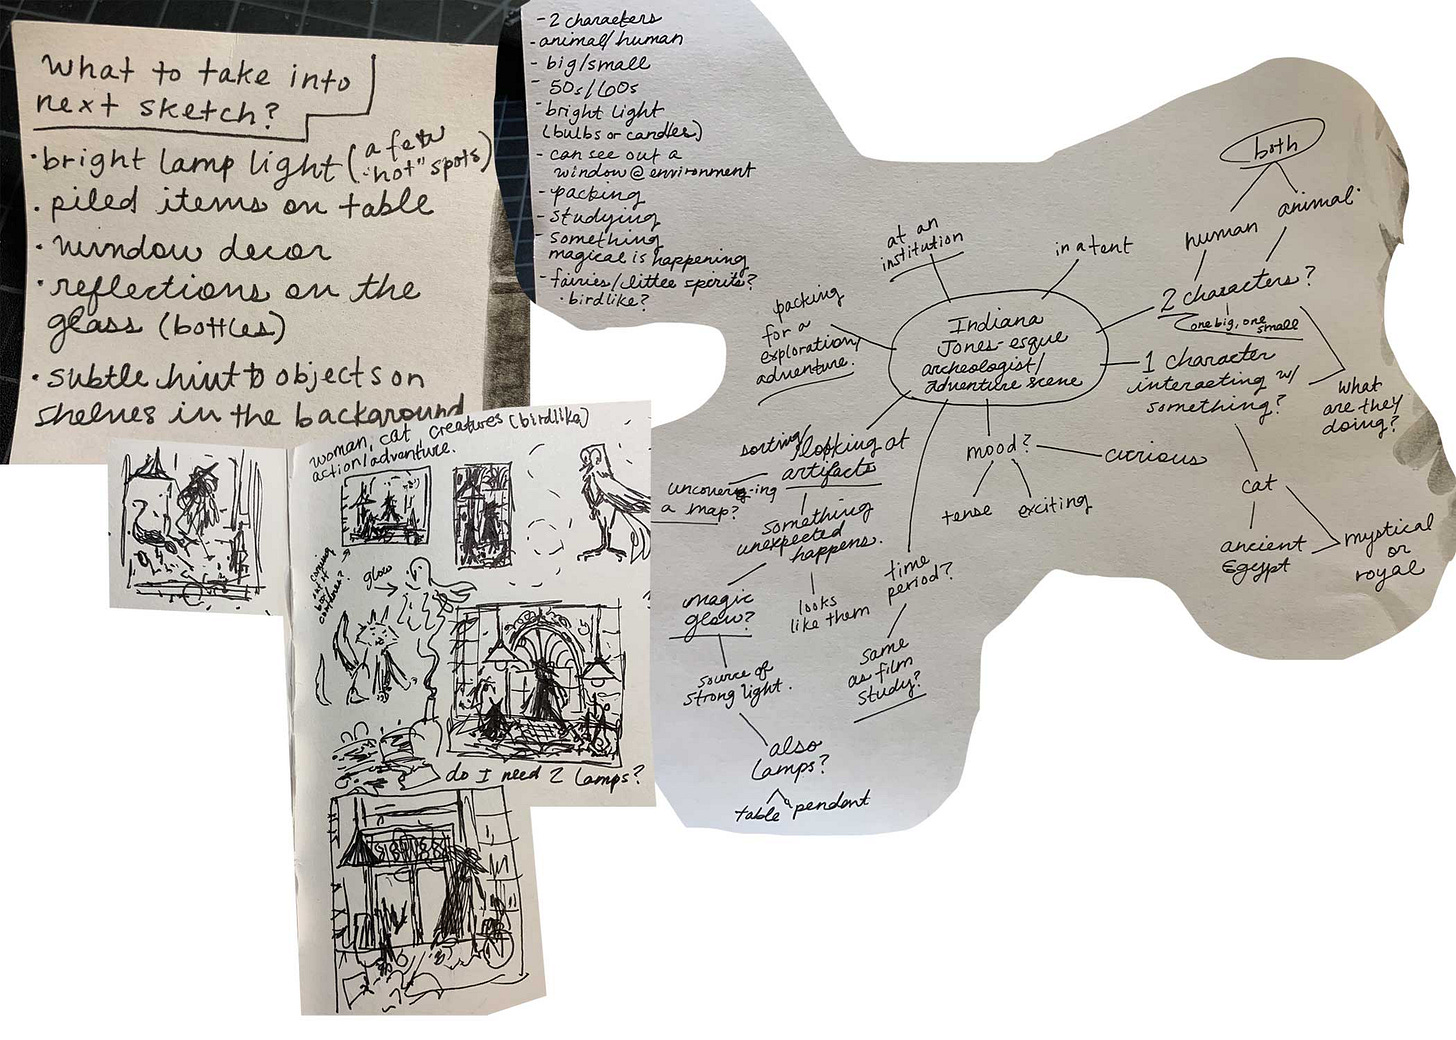 What to take into
next sketch?
• bright lamp light (a few
"hot" spots)
• piled items on table
• window decor
• reflections on the
glass (bottles)
• subtle hint to objects on
shelves in the background
- 2 characters
- animal/human
- big/small
- 50s/60s
- bright light
(bulbs or candles)
- can see out a
window @ environment
- packing
- studying
- something
magical is happening
- fairies/little spirits?
• birdlike?
both
human
animal
2 characters?
one big, one small
at an
institution
in a tent
packing
for a
exploration/
adventure.
Indiana
Jones-esque
archeologist/
adventure scene
1 character
interacting w/
something?
what
are they
doing?
cat
ancient
Egypt
mystical
or
royal
sorting/looking at
artifacts
uncovering
a map?
something
unexpected
happens.
magic
glow?
looks
like them
source of
strong light.
also
lamps?
table pendant
mood?
curious
tense
exciting
time
period?
same
as film
study?
woman, cat, creatures (birdlike)
action/adventure.
glow
do I need 2 lamps?